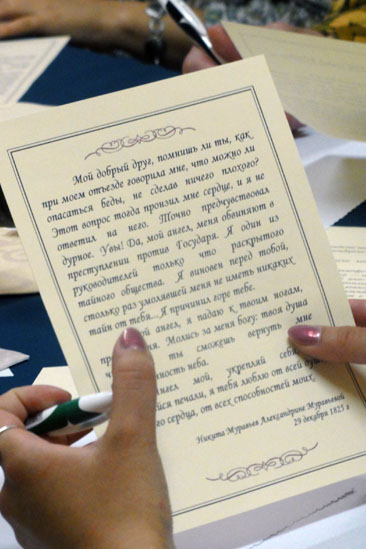 Мой добрый друг, помнишь ли ты, как
при моем отъезде говорила мне, что можно ли
опасаться беды, не сделав ничего плохого?
Этот вопрос тогда пронзил мне сердце, и я не
ответил на него. Точно предчувствовал
дурное. Увы! Да, мой ангел, меня обвиняют в
преступлении против Государя. Я один из
руководителей только что раскрытого
тайного общества. Я виновен перед тобой,
столько раз умолявшей меня не иметь никаких
тайн от тебя...Я причинил горе тебе.
ангел, я падаю к твоим ногам,
Молись за меня богу: твоя душа
ты сможешь вернуть мне
неба.
мой, укрепляй
я тебя люблю от всей
сердца, от всех способностей моих.
Никита Муравьев Александрине Муравьевой
29 декабря 1825 г